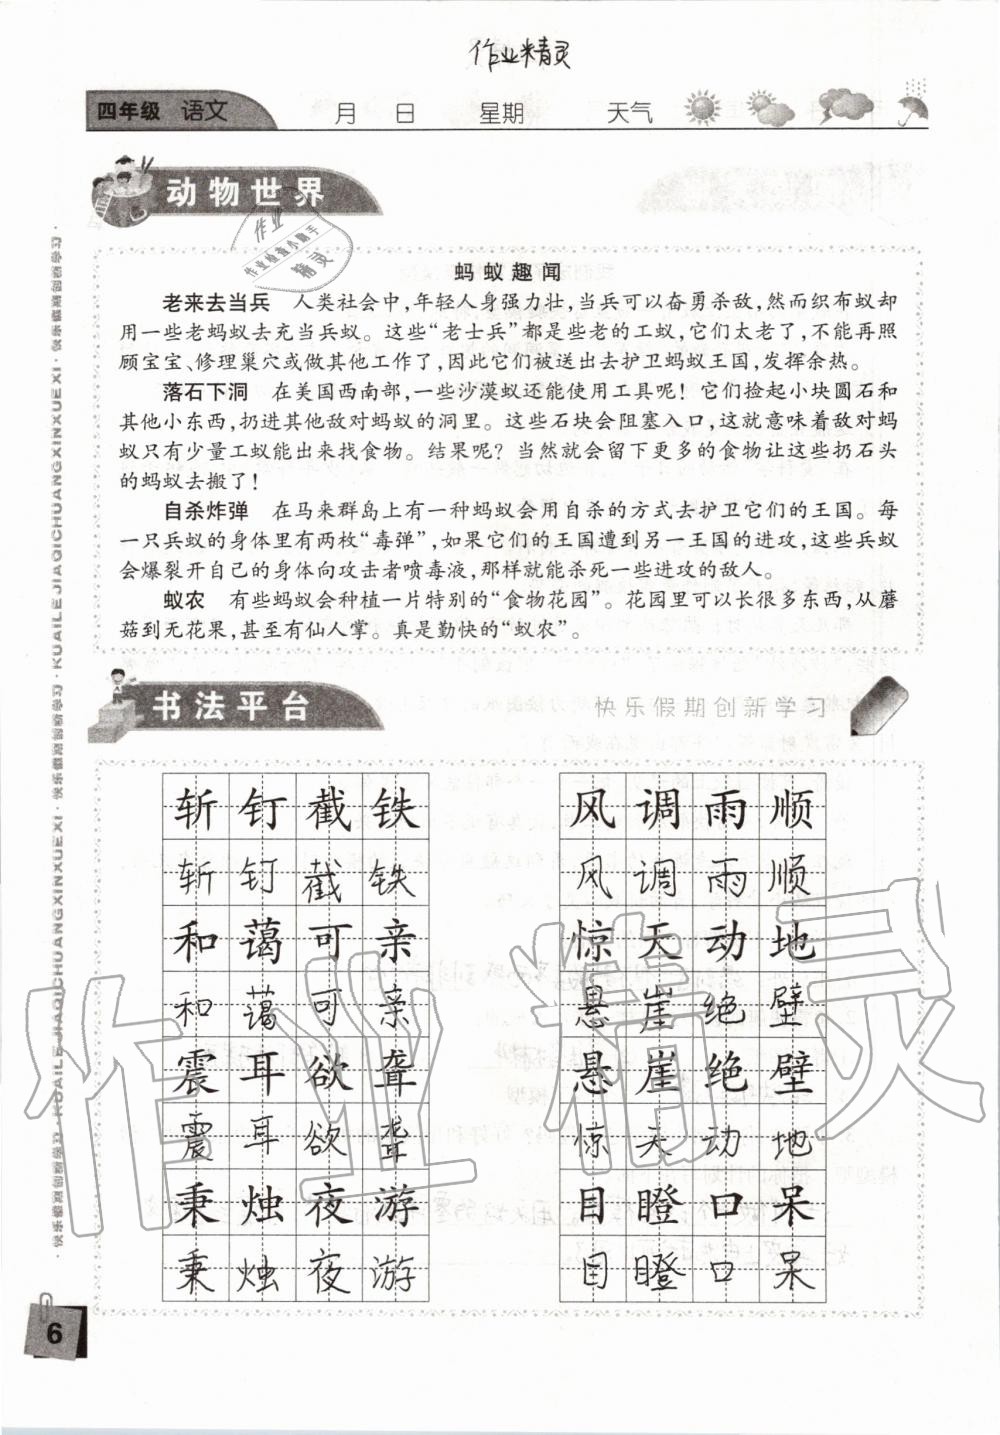 作业精灵
四年级 语文 月 日 星期 天气
动物世界
作业
作业检查小助手
精灵
蚂蚁趣闻
老来去当兵 人类社会中,年轻人身强力壮,当兵可以奋勇杀敌,然而织布蚁却
用一些老蚂蚁去充当兵蚁。这些“老士兵”都是些老的工蚁,它们太老了,不能再照
顾宝宝、修理巢穴或做其他工作了,因此它们被送出去护卫蚂蚁王国,发挥余热。
落石下洞 在美国西南部,一些沙漠蚁还能使用工具呢!它们捡起小块圆石和
其他小东西,扔进其他敌对蚂蚁的洞里。这些石块会阻塞入口,这就意味着敌对蚂
蚁只有少量工蚁能出来找食物。结果呢?当然就会留下更多的食物让这些扔石头
的蚂蚁去搬了!
自杀炸弹 在马来群岛上有一种蚂蚁会用自杀的方式去护卫它们的王国。每
一只兵蚁的身体里有两枚“毒弹”,如果它们的王国遭到另一王国的进攻,这些兵蚁
会爆裂开自己的身体向攻击者喷毒液,那样就能杀死一些进攻的敌人。
蚁农 有些蚂蚁会种植一片特别的“食物花园”。花园里可以长很多东西,从蘑
菇到无花果,甚至有仙人掌。真是勤快的“蚁农”。
书法平台
快乐假期创新学习
斩钉截铁 风调雨顺
斩钉截铁 风调雨顺
和蔼可亲 惊天动地
和蔼可亲 悬崖绝壁
震耳欲聋 悬崖绝壁
震耳欲聋 惊天动地
秉烛夜游 目瞪口呆
秉烛夜游 目瞪口呆
作业精灵
6
·快乐假期创新学习·KUAILE JIAQICHUANGXINXUEXI·快乐假期创新学习·KUAILE JIAQICHUANGXINXUEXI·快乐假期创新学习·KUAILE JIAQICHUANGXINXUEXI·快乐假期创新学习·